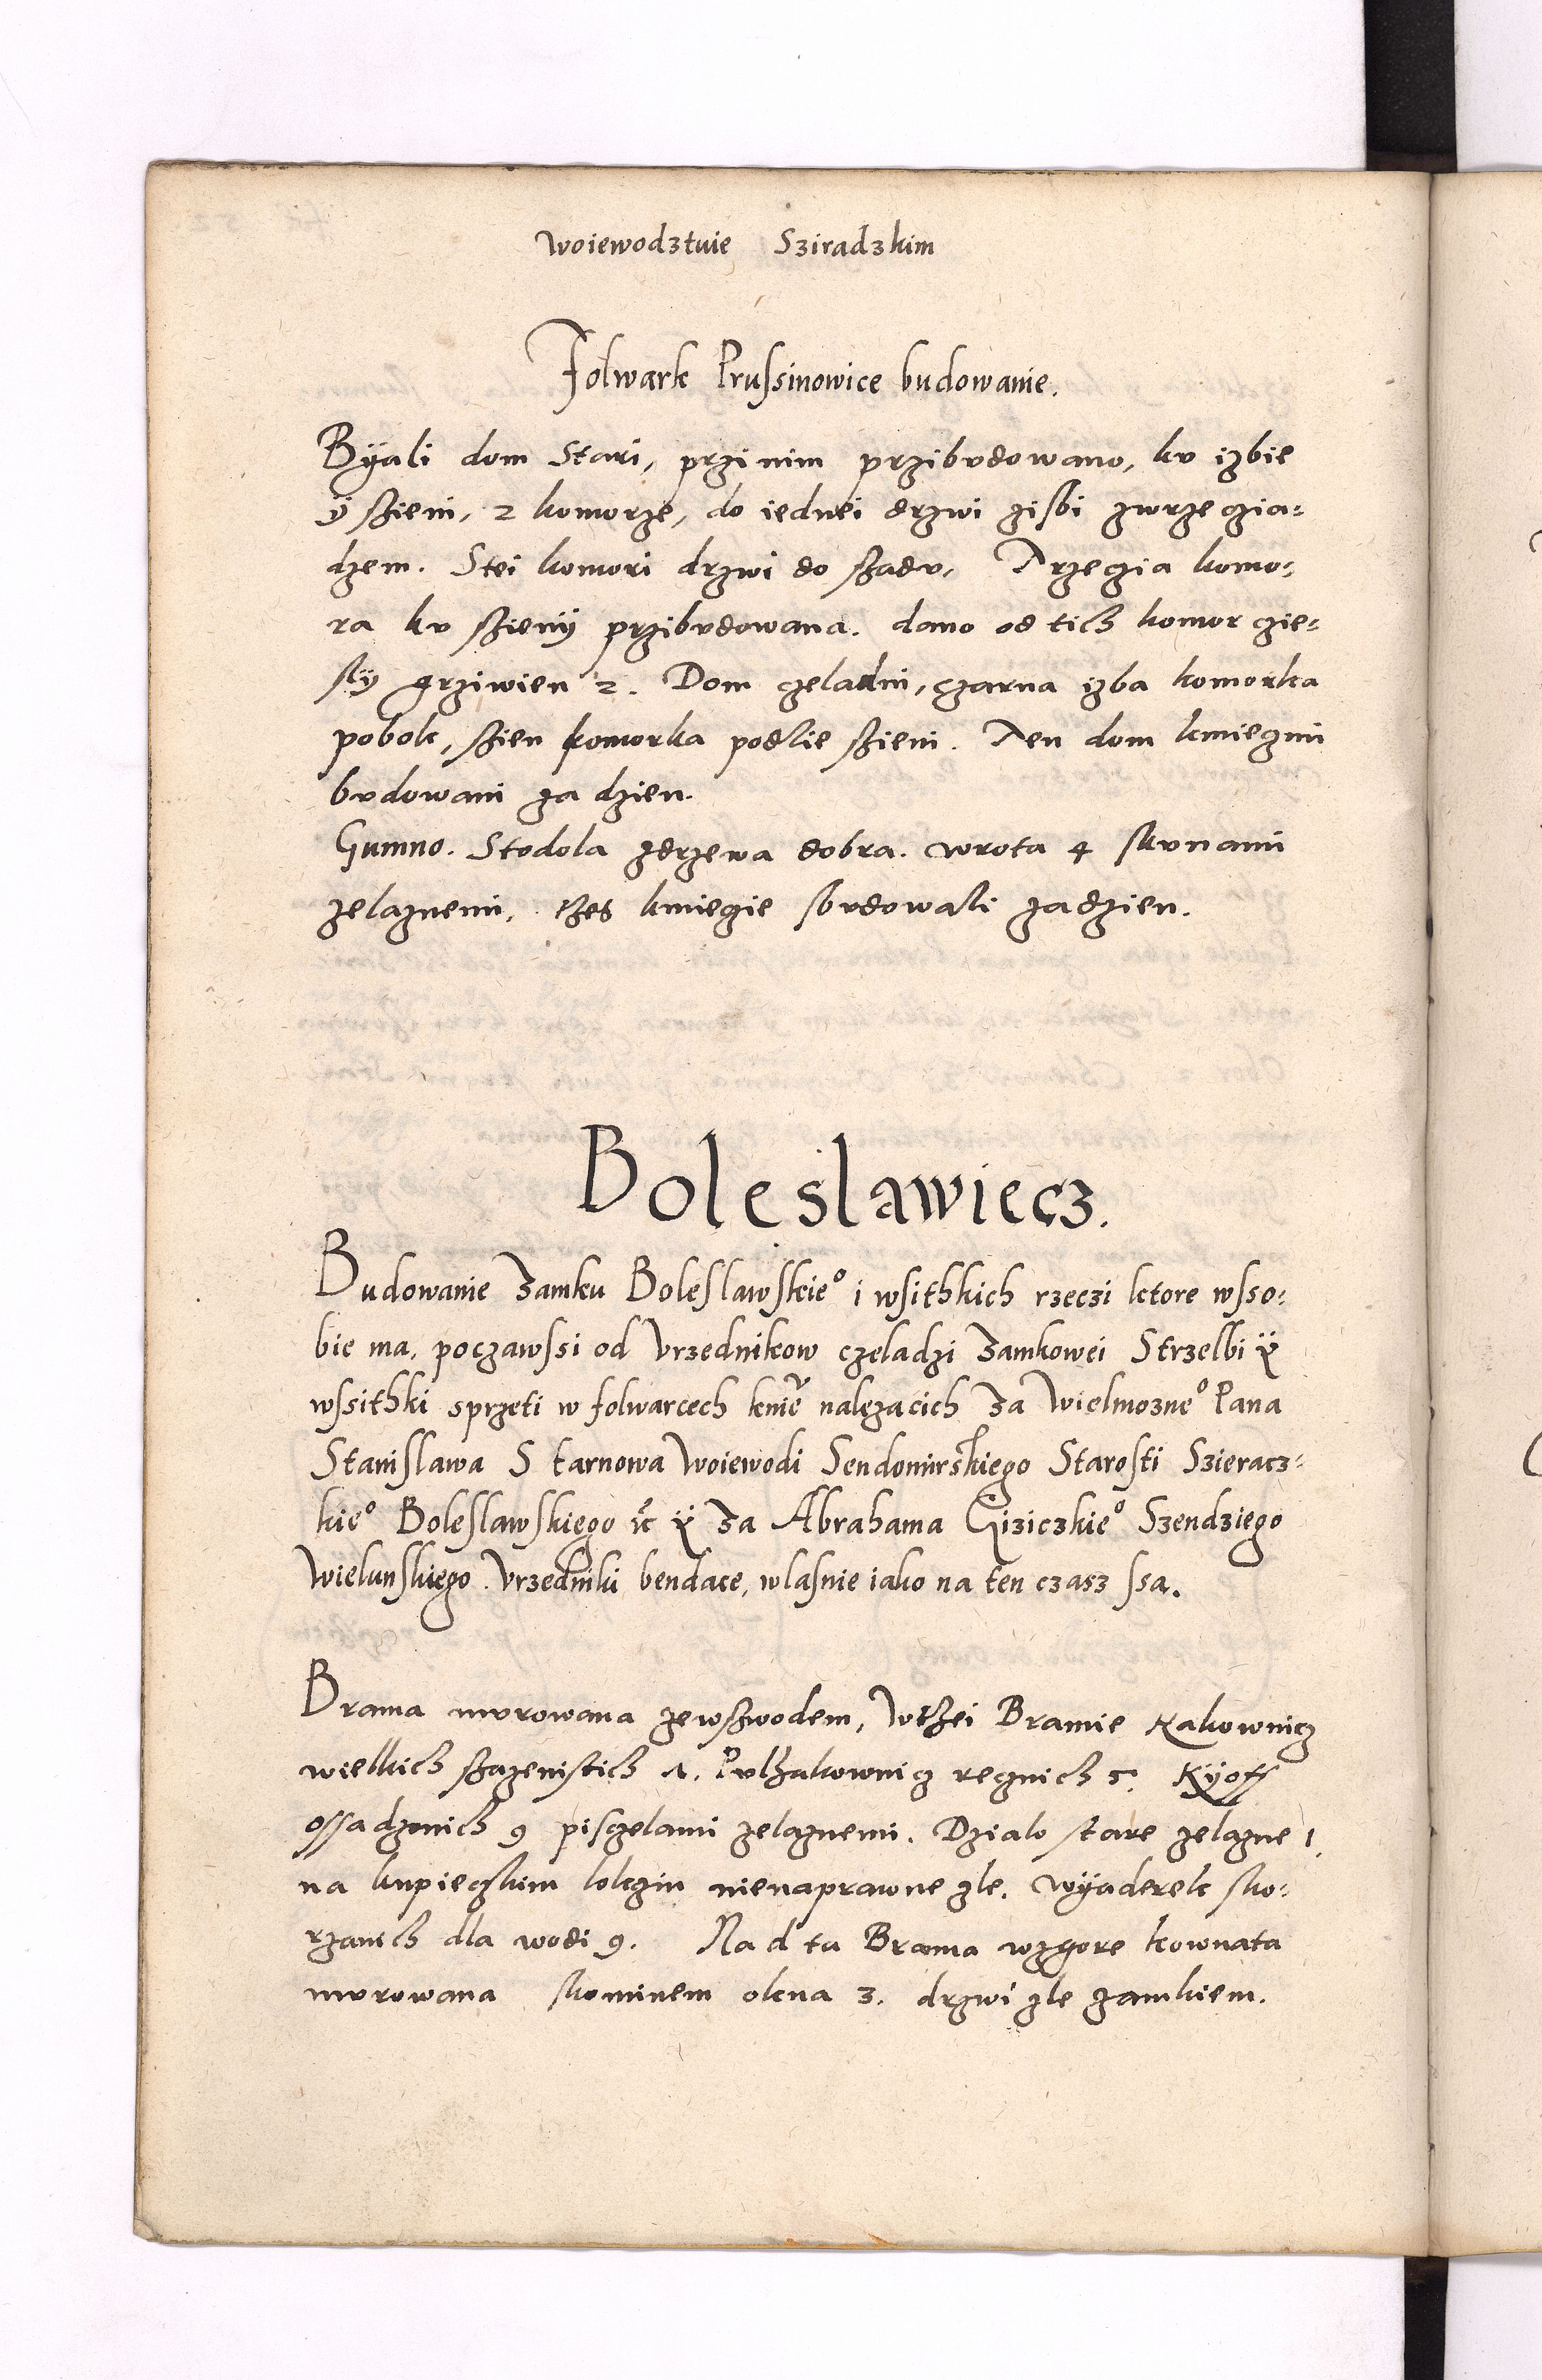 woiewodztwie Sziradzkim
Folwark Prussinowice budowanie.
Byali dom Stari, przi nim przibudowano, ku izbie
ÿ szieni, 2 komorze, do iednei drzwi zisbi zwrzeczia-
dzem. Stei komori drzwi do szadu. Trzeczia komo-
ra ku szienÿ przibudowana. dano od tich komor czie-
slÿ grziwien 2. Dom czeladni, czarna izba komorka
pobok, szien komorka podlie szieni. Ten dom kmieczmi
budowani za dzien.
Gumno. Stodola zdrzewa dobra. wrota 4 skunami
zelaznemi, tzes kmiecie sbudowali zadzien.
Boleslawiecz.
Budowanie Zamku Boleslawskie° i wsithkich rzeczi ktore wsso-
bie ma, poczawssi od Vrzednikow czeladzi Zamkowei Strzelbi ÿ
wssithki sprzeti w folwarcech knie nalezacich Za Wielmozne° Pana
Stanislawa S tarnowa Woiewodi Sendomirskiego Starosti Szieracz-
kie° Boleslawskiego ÿ Za Abrahama Giziczkie° Szendziego
Wielunskiego Vrzedniki bendace, wlasnie iako na ten czasz ssa.
Brama murowana zewszwodem, Wtzei Bramie Hakownicz
wielkich szazenistich 1. Pulhakownicz recznich 5. Kÿoff
ossadzonich 9 pisczelami zelaznemi. Dzialo stare zelazne 1.
na kupieczkim lokziu nienaprawne zle. wÿaderek sko-
rzanich dla wodi 9. Na d ta Brama wzgore kownata
murowana skominem okna 3. drzwi zle zamkiem.